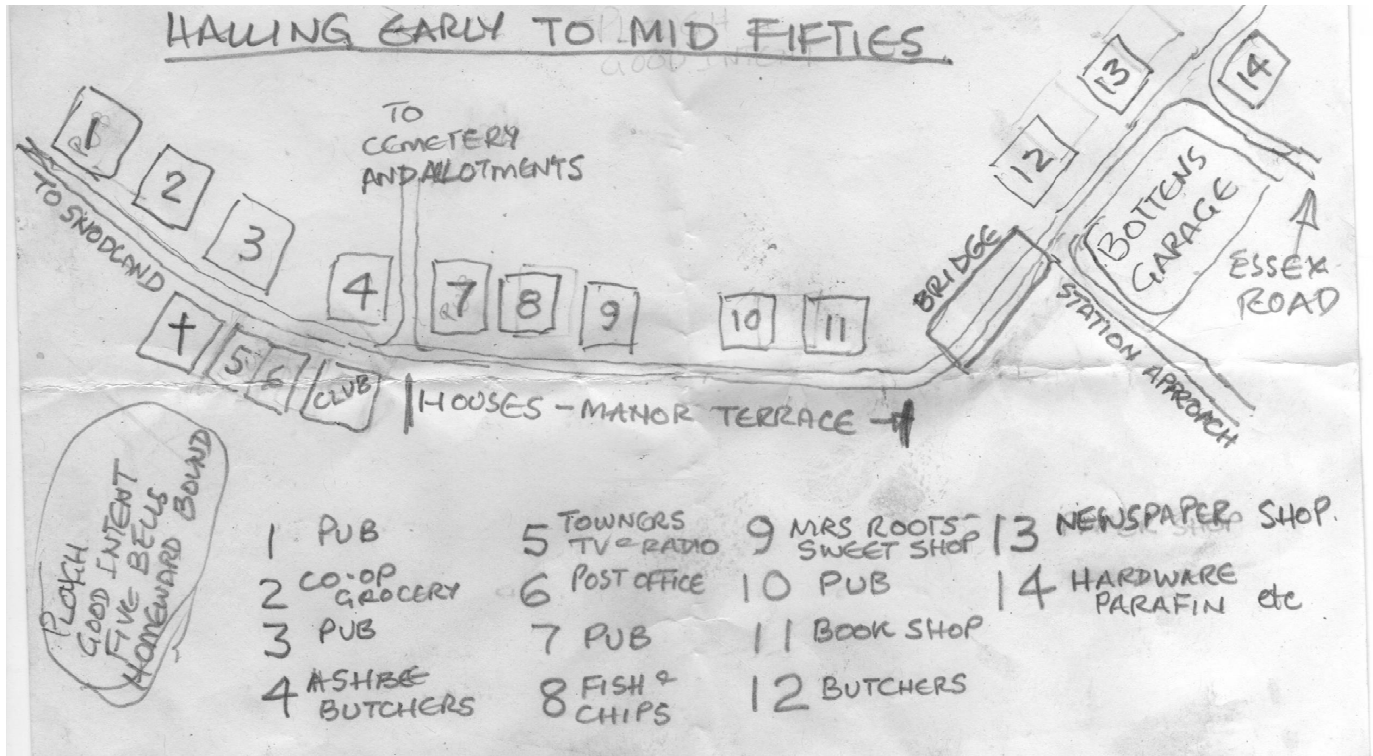 HALLING EARLY TO MID FIFTIES
TO
CEMETERY
AND ALLOTMENTS
1
2
3
4
7
8
9
10
11
12
13
14
TO SNODLAND
5
6
CLUB
HOUSES - MANOR TERRACE
BRIDGE
BOTTENS
GARAGE
STATION APPROACH
ESSEX
ROAD
PLOUGH
GOOD INTENT
FIVE BELLS
HOMEWARD BOUND
1 PUB
2 CO-OP
GROCERY
3 PUB
4 ASHBEE
BUTCHERS
5 TOWNERS
TV & RADIO
6 POST OFFICE
7 PUB
8 FISH &
CHIPS
9 MRS ROOTS-
SWEET SHOP
10 PUB
11 BOOK SHOP
12 BUTCHERS
13 NEWSPAPER SHOP.
14 HARDWARE
PARAFIN etc